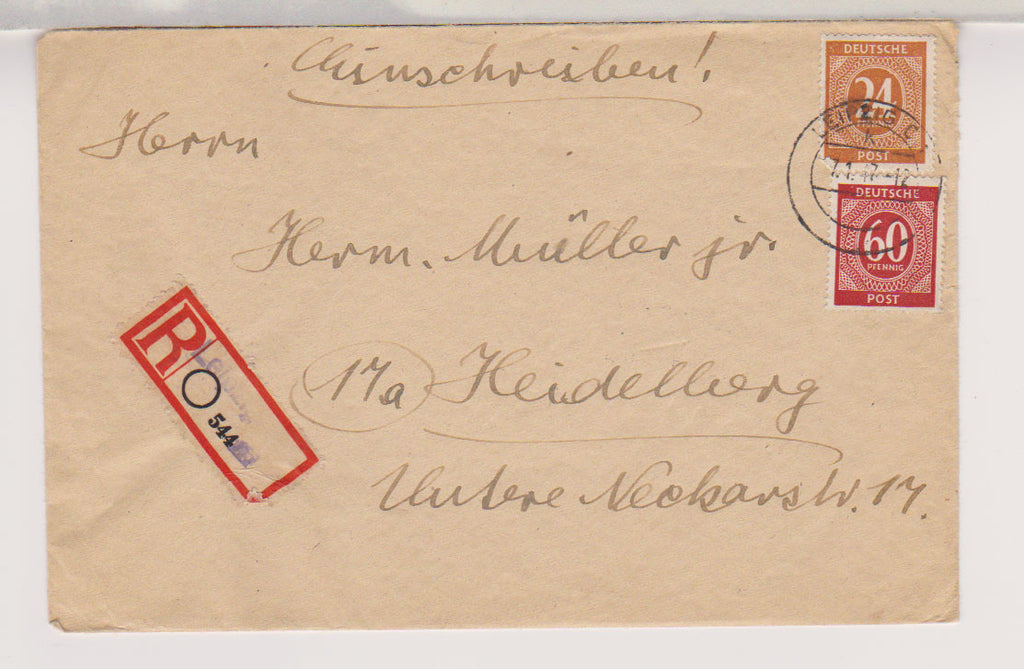 Einschreiben!
Herrn
Herm. Müller jr.
17a Heidelberg
Untere Neckarstr. 17.
DEUTSCHE
24
POST
7.1.47-12
DEUTSCHE
60
PFENNIG
POST
R
544